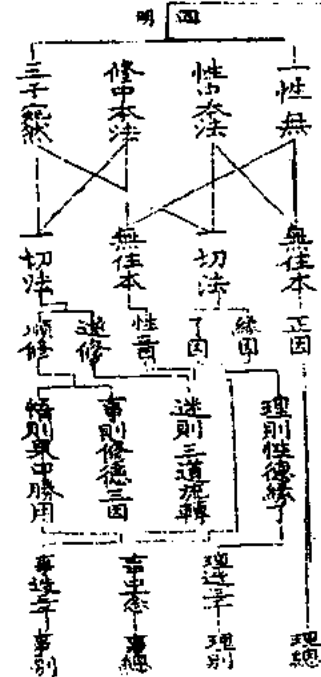 明 因
一性無
性中本法
修中本法
三千宛然
無住本
一切法
無住本
一切法
正因
緣因
了因
性習
逆修
順修
理則性德緣了
迷則三道流轉
事則修德三因
悟則果中勝用
理總
理造三千 理別
事中一念 事總
事造三千 事別